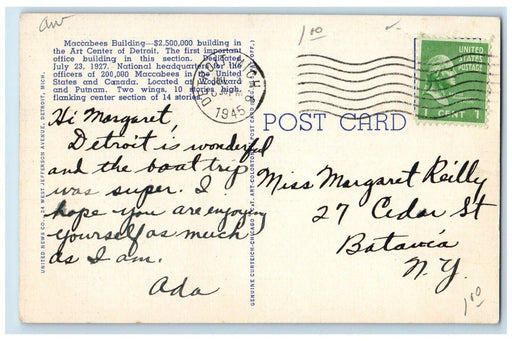 aw
1 00
Maccabees Building—$2,500,000 building in
the Art Center of Detroit. The first important
office building in this section. Dedicated
July 23, 1927. National headquarters for the
officers of 200,000 Maccabees in the United
States and Canada. Located at Woodward
and Putnam. Two wings, 10 stories high,
flanking center section of 14 stories.
1945
UNITED
STATES
POSTAGE
CENT 1
POST CARD
Hi Margaret,
Detroit is wonderful
and the boat trip
was super. I
hope you are enjoying
yourself as much
as I am.
Ada
Miss Margaret Reilly
27 Cedar St
Batavia
N.Y.
1 00
UNITED NEWS CO., 24 WEST JEFFERSON AVENUE, DETROIT, MICH.
GENUINE CURTEICH-CHICAGO "C.T. ART-COLORTONE" POST CARD (REG. U.S. PAT. OFF.)